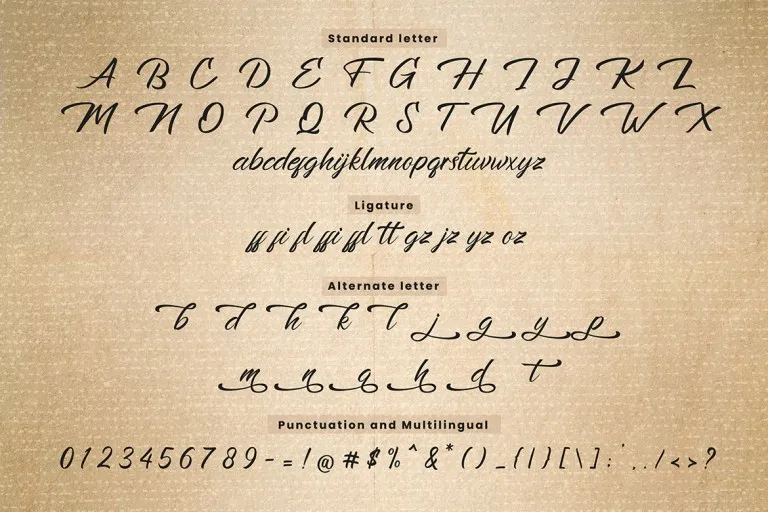 Standard letter
A B C D E F G H I J K L
M N O P Q R S T U V W X
abcdefghijklmnopqrstuvwxyz
Ligature
ff fi fl ffi ffl tt gz jz yz oz
Alternate letter
b d h k l j g y
m n a h d t
Punctuation and Multilingual
0123456789-=!@#$%^&*()_{|}[\]:'.,/<>?